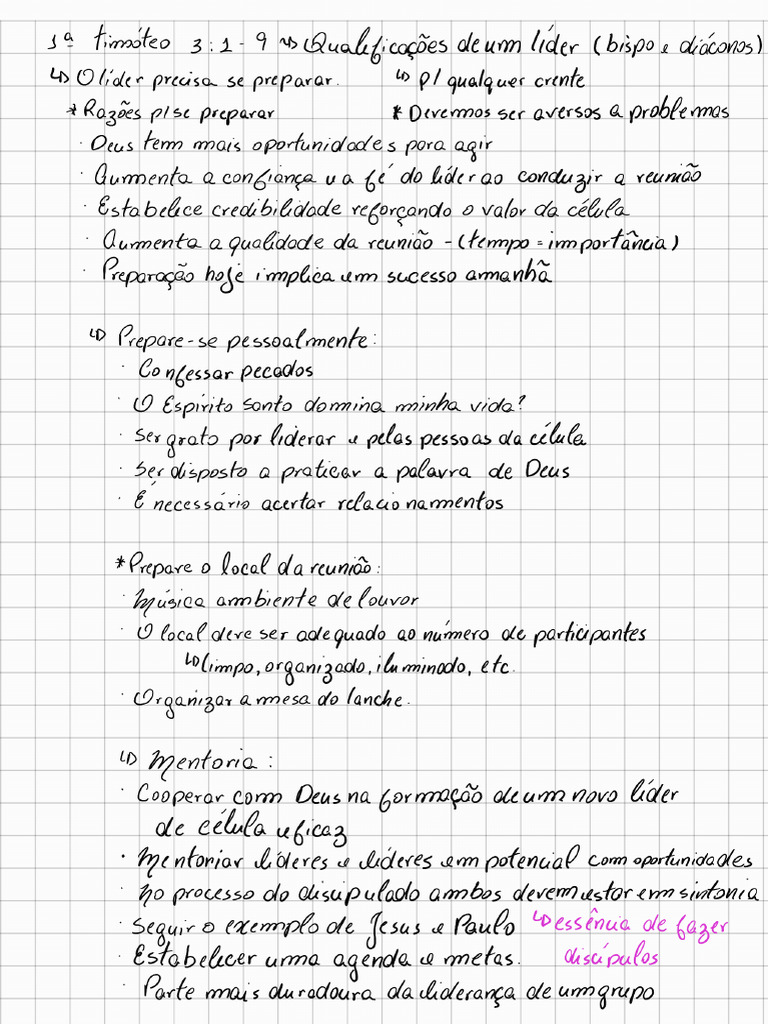 1ª timóteo 3:1-9 ~> Qualificações de um líder (bispo e diáconos)
↳ O líder precisa se preparar. ↳ p/ qualquer crente
* Razões p/ se preparar * Devemos ser aversos a problemas
· Deus tem mais oportunidades para agir
· Aumenta a confiança e a fé do líder ao conduzir a reunião
· Estabelece credibilidade reforçando o valor da célula
· Aumenta a qualidade da reunião - (tempo = importância)
· Preparação hoje implica em sucesso amanhã
↳ Prepare-se pessoalmente:
· Confessar pecados
· O Espírito santo domina minha vida?
· ser grato por liderar e pelas pessoas da célula
· ser disposto a praticar a palavra de Deus
· É necessário acertar relacionamentos
* Prepare o local da reunião:
· Música ambiente de louvor
· O local deve ser adequado ao número de participantes
↳ limpo, organizado, iluminado, etc.
· Organizar a mesa do lanche.
↳ Mentoria:
· Cooperar com Deus na formação de um novo líder
de célula eficaz
· Mentoriar líderes e líderes em potencial com oportunidades
· No processo do discipulado ambos devem estar em sintonia
· Seguir o exemplo de Jesus e Paulo ↳ essência de fazer
· Estabelecer uma agenda e metas. discípulos
· Parte mais duradoura da liderança de um grupo